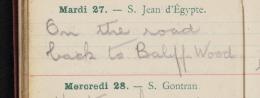 Mardi 27. — S. Jean d'Égypte.
On the road
back to Bailff-Wood
Mercredi 28. — S. Gontran